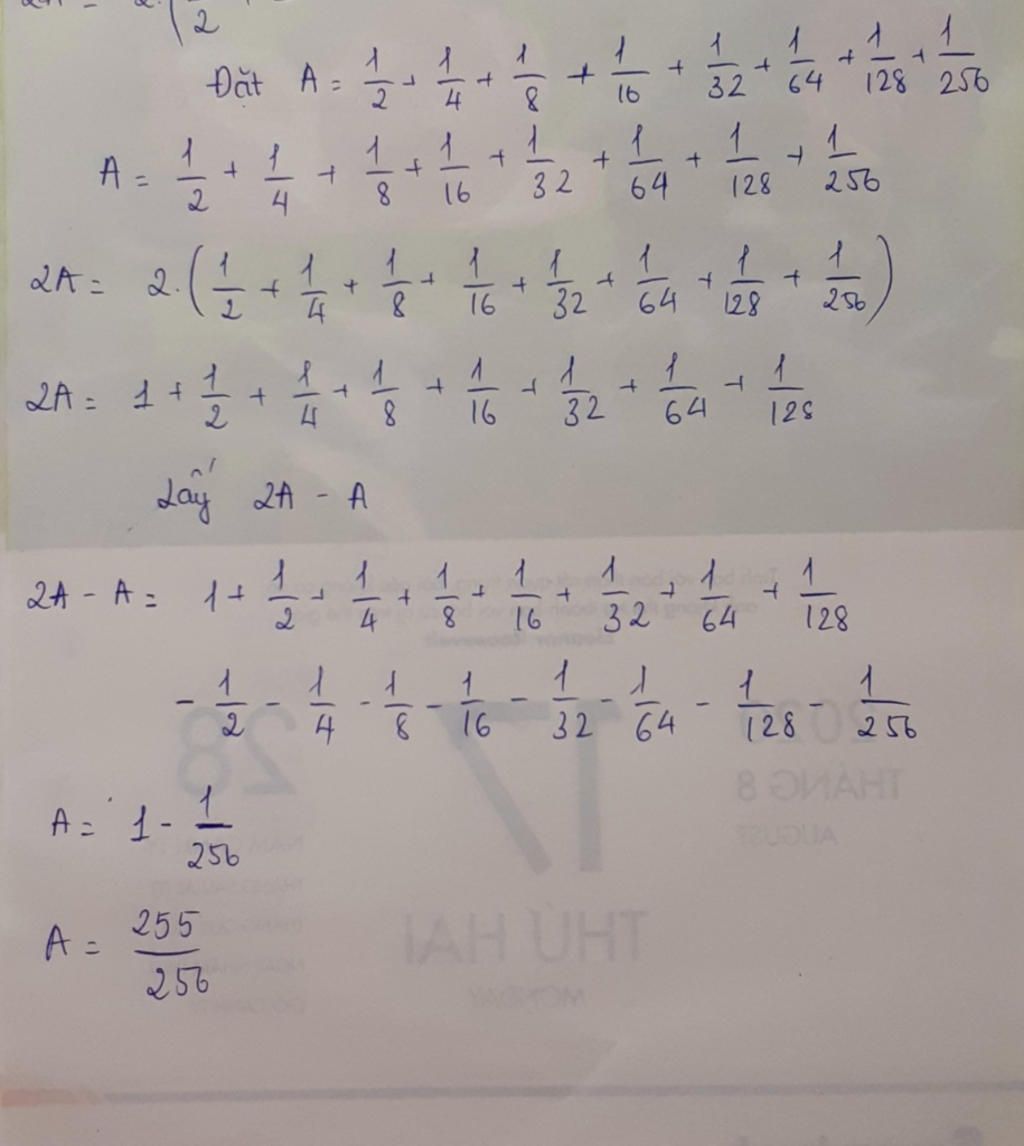 2
Đặt A = 1/2 + 1/4 + 1/8 + 1/16 + 1/32 + 1/64 + 1/128 + 1/256
A = 1/2 + 1/4 + 1/8 + 1/16 + 1/32 + 1/64 + 1/128 + 1/256
2A = 2.(1/2 + 1/4 + 1/8 + 1/16 + 1/32 + 1/64 + 1/128 + 1/256)
2A = 1 + 1/2 + 1/4 + 1/8 + 1/16 + 1/32 + 1/64 + 1/128
Lấy 2A - A
2A - A = 1 + 1/2 + 1/4 + 1/8 + 1/16 + 1/32 + 1/64 + 1/128
- 1/2 - 1/4 - 1/8 - 1/16 - 1/32 - 1/64 - 1/128 - 1/256
28 17 2020
THÁNG 8
AUGUST
A = 1 - 1/256
THỨ HAI
A = 255/256
MONDAY